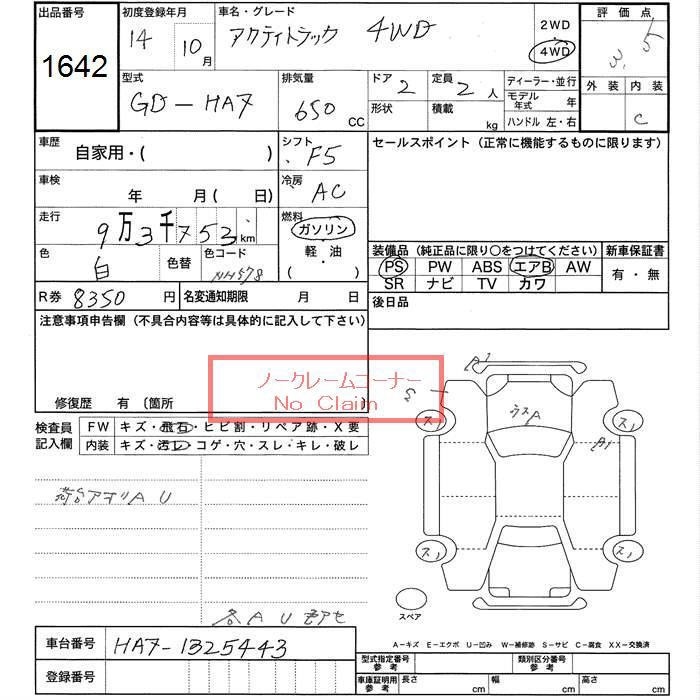 出品番号 初度登録年月 車名・グレード 評価点
1642 14 10月 アクティトラック 4WD 2WD 4WD 3.5
型式 排気量 ドア 定員 ディーラー・並行 外装 内装
GD-HA7 650 CC 2 2人 モデル年式 年 C
形状 積載 kg ハンドル 左・右
車歴 自家用・( ) シフト F5 セールスポイント (正常に機能するものに限ります)
車検 年 月 ( 日) 冷房 AC
走行 9万3千753km 燃料 ガソリン
軽・油
( )
色 白 色替 色コード NH578
装備品 (純正品に限り○をつけてください) 新車保証書
PS PW ABS エアB AW 有・無
SR ナビ TV カワ
R券 8350円 名変通知期限 月 日 後日品
注意事項申告欄 (不具合内容等は具体的に記入して下さい)
ノークレームコーナー
No Claim
修復歴 有 〔箇所
検査員記入欄 FW キズ・飛石・ヒビ割・リペア跡・X要
内装 キズ・汚レ・コゲ・穴・スレ・キレ・破レ
A1
S
ス1 ス1
ウスA
A1
ス1 ス1
荷台アオリAU
スペア
各AU
A-キズ E-エクボ U-凹み W-補修跡 S-サビ C-腐食 XX-交換済
車台番号 HA7-1325443
登録番号
型式指定番号 参考 類別区分番号 参考
車庫証明用 参考 長さ cm 幅 cm 高さ cm